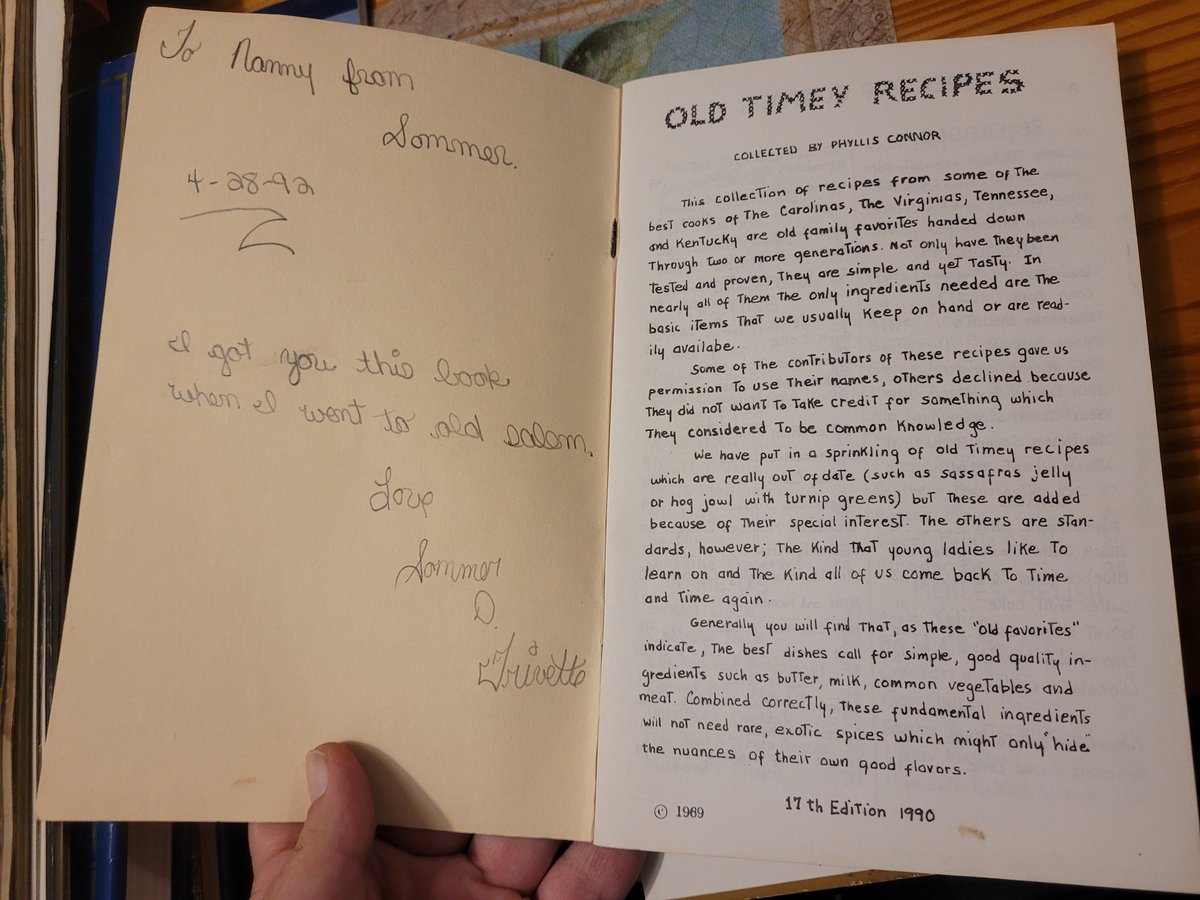 To Nanny from
Sommer.
4-28-92
I got you this book
when I went to old salem.
Love
Sommer
D.
Trivette
OLD TIMEY RECIPES
COLLECTED BY PHYLLIS CONNOR
This collection of recipes from some of the
best cooks of The Carolinas, The Virginias, Tennessee,
and Kentucky are old family favorites handed down
Through two or more generations. Not only have they been
tested and proven, They are simple and yet tasty. In
nearly all of them the only ingredients needed are the
basic items that we usually keep on hand or are read-
ily availabe.
Some of the contributors of these recipes gave us
permission to use their names, others declined because
they did not want to take credit for something which
they considered to be common knowledge.
We have put in a sprinkling of old timey recipes
which are really out of date (such as sassafras jelly
or hog jowl with turnip greens) but these are added
because of their special interest. The others are stan-
dards, however; the kind that young ladies like to
learn on and the kind all of us come back to time
and time again.
Generally you will find that, as these "old favorites"
indicate, the best dishes call for simple, good quality in-
gredients such as butter, milk, common vegetables and
meat. Combined correctly, these fundamental ingredients
will not need rare, exotic spices which might only "hide"
the nuances of their own good flavors.
© 1969
17th Edition 1990